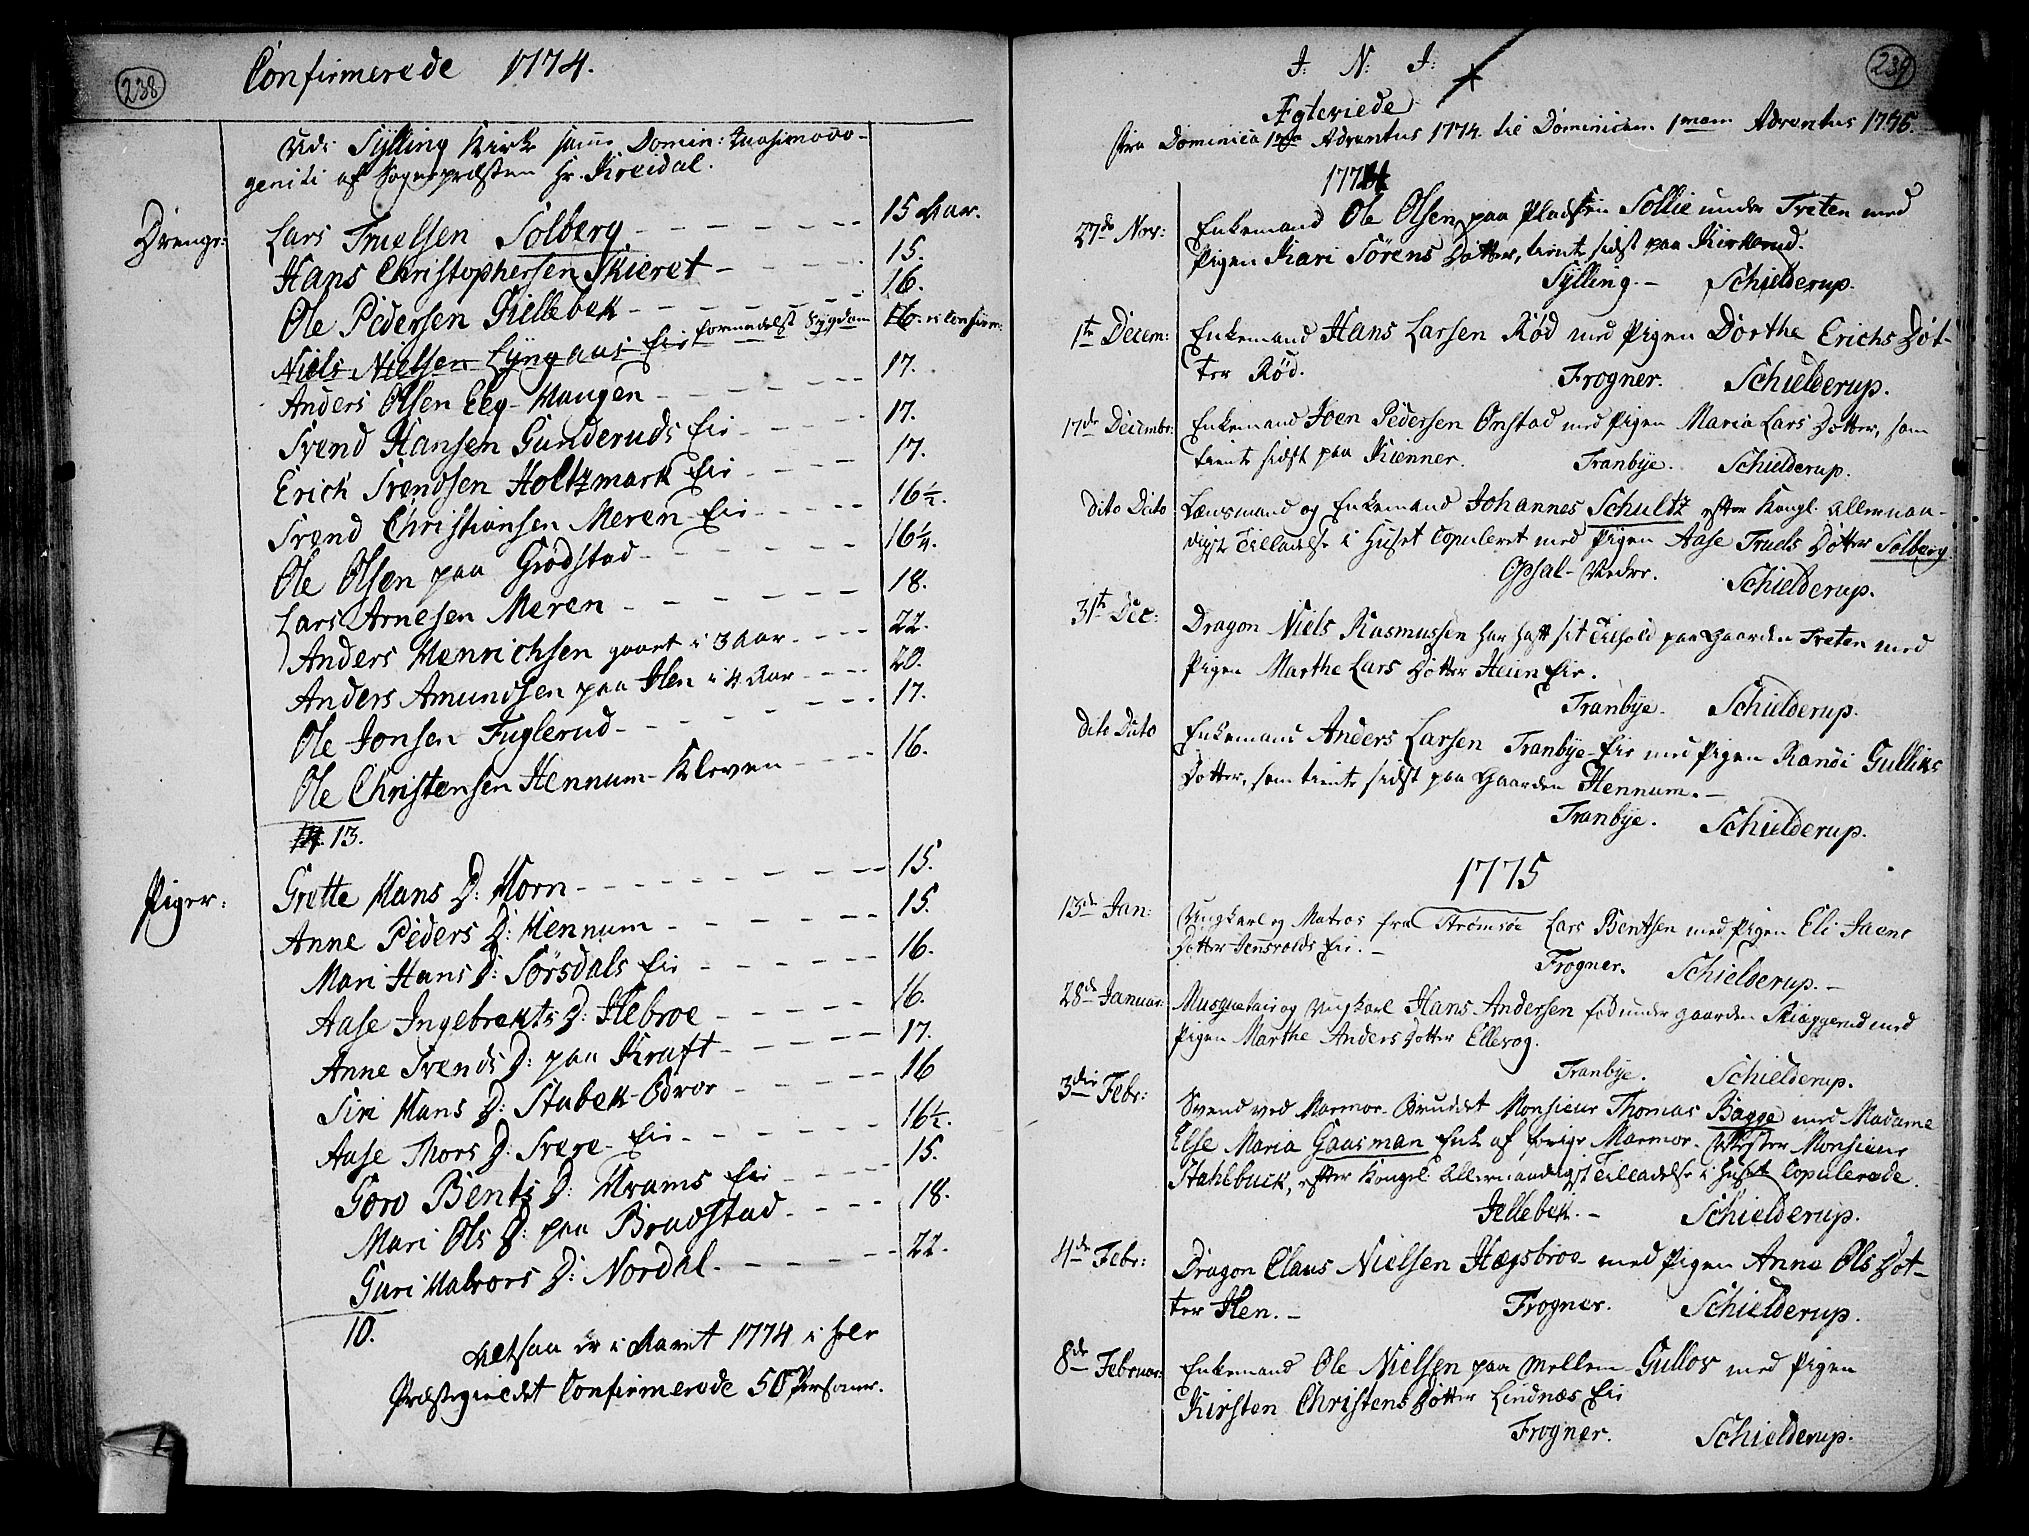 238
Confirmerede 1774.
Udi Sylling Kirke samme Domin: Quasimodo-
geniti af Sognepræsten Hr. Kreidal.
Drenge:
Lars Truelsen Solberg 15 Aar.
Hans Christophersen Skieret 15.
Ole Pedersen Gillebek 16.
Niels Nielsen Lyngaas Eie formedelst Sygdom 16. ei Confirm:
Anders Olsen Eeg-Haugen 17.
Svend Hansen Gunderuds Eie 17.
Erich Svendsen Holtzmark Eie 17.
Svend Christiansen Meren Eie 16½.
Ole Olsen paa Grødstad 16¼.
Lars Arnesen Meren 18.
Anders Henrichsen gaaet i 3 Aar 22.
Anders Amundsen paa Hen i 4 Aar 20.
Ole Jonsen Fuglerud 17.
Ole Christensen Hennum-Kleven 16.
14. 13.
Piger:
Grette Hans D: Horn 15.
Anne Peders D: Hennum 15.
Mari Hans D: Sørsdals Eie 16.
Aase Ingebrekts D: Hebroe 16.
Anne Svends D: paa Kraft 17.
Siri Hans D: Stabek-Odvor 16
Aase Thors D: Svere-Eie 16½.
Goro Bents D: Hrams Eie 15.
Mari Ols D: paa Bradstad 18.
Guri Halvors D: Nordal 22.
10.
Altsaa er i Aaret 1774 i hele
Præstegieldet Confirmerede 50 Personer.
239
J: N: J:
Ægteviede
fra Dominica 1ma Adventus 1774 til Dominicam 1mam Adventus 1775.
1774
27de Nov: Enkemand Ole Olsen paa Pladsen Sollie under Treten med
Pigen Kari Sörens Dotter, tient sidst paa Kirkerud.
Sylling.- Schielderup.
1te Decem: Enkemand Hans Larsen Rød med Pigen Dorthe Erichs Dot-
ter Rød. Frogner. Schielderup.
17de Decembr: Enkemand Joen Pedersen Onstad med Pigen Maria Lars Dotter, som
tiente sidst paa Kienner. Tranbye. Schielderup.
Dito Dito Lænsmand og Enkemand Johannes Schultz efter Kongl. allernaa-
digst Tilladelse i Huset Copuleret med Pigen Aase Truels Dotter Solberg
Opsal-Vedre. Schielderup.
31te Dec: Dragon Niels Rasmussen har haft sit Tilhold paa Gaarden Treten med
Pigen Marthe Lars Dotter Heien Eie.
Tranbye. Schielderup.
Dito Dito Enkemand Anders Larsen Tranbye-Eie med Pigen Randi Gulliks
Dotter, som tiente sidst paa Gaarden Hennum.-
Tranbye. Schielderup.
1775
13de Jan: Ungkarl og Matros fra Strømsøe Lars Bentsen med Pigen Eli
Dotter Eie.-
Frogner. Schielderup.-
28de Januar: Musqueteir og Ungkarl Hans Andersen fød under Gaarden Skiæggerud med
Pigen Marthe Anders Dotter Ellevog.
Tranbye. Schielderup.
3die Febr: Svend ved Marmor-Bruddet Monsieur Thomas Bagge med Madame
Else Maria Gaasman Enke af forige Marmor-Mester Monsieur
Stahlbuck, efter Kongel Allernaadigst Tilladelse i Huset Copulerede.
Jellebek.- Schielderup.
4de Febr: Dragon Claus Nielsen Hægsbroe med Pigen Anne Ols Dot-
ter Hen.- Frogner. Schielderup.
8de Februar: Enkemand Ole Nielsen paa mellem Gullov med Pigen
Kirsten Christens Dotter Lindnæs Eie
Frogner. Schielderup.